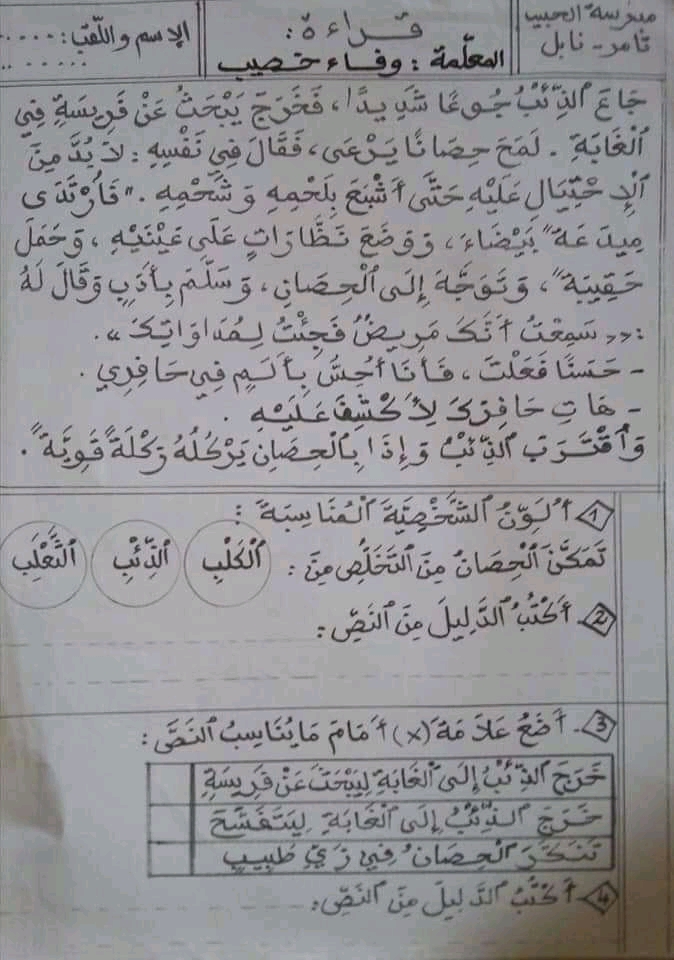 مدرسة الحبيب
ثامر - نابل
قراءة :
المعلّمة : وفاء خصيب
الإسم واللّقب : ....
......
جَاعَ الذِّئْبُ جُوعًا شَدِيدًا، فَخَرَجَ يَبْحَثُ عَنْ فَرِيسَةٍ فِي
الْغَابَةِ . لَمَحَ حِصَانًا يَرْعَى، فَقَالَ فِي نَفْسِهِ : لَا بُدَّ مِنَ
الْإِحْتِيَالِ عَلَيْهِ حَتَّى أَشْبَعَ بِلَحْمِهِ وَشَحْمِهِ ." فَارْتَدَى
مِيدَعَةً بَيْضَاءَ، وَوَضَعَ نَظَّارَاتٍ عَلَى عَيْنَيْهِ، وَحَمَلَ
حَقِيبَةً، وَتَوَجَّهَ إِلَى الْحِصَانِ، وَسَلَّمَ بِأَدَبٍ وَقَالَ لَهُ
: «سَمِعْتُ أَنَّكَ مَرِيضٌ فَجِئْتُ لِمُدَاوَاتِكَ».
- حَسَنًا فَعَلْتَ، فَأَنَا أُحِسُّ بِأَلَمٍ فِي حَافِرِي .
- هَاتِ حَافِرَكَ لِأَكْشِفَ عَلَيْهِ .
وَاقْتَرَبَ الذِّئْبُ وَإِذَا بِالْحِصَانِ يَرْكُلُهُ رَكْلَةً قَوِيَّةً .
1 أُلَوِّنُ الشَّخْصِيَّةَ الْمُنَاسِبَةَ :
تَمَكَّنَ الْحِصَانُ مِنَ التَّخَلُّصِ مِنَ : الْكَلْبِ الذِّئْبِ الثَّعْلَبِ
2 - أَكْتُبُ الدَّلِيلَ مِنَ النَّصِّ :
3 - أَضَعُ عَلَامَةَ (x) أَمَامَ مَا يُنَاسِبُ النَّصَّ :
خَرَجَ الذِّئْبُ إِلَى الْغَابَةِ لِيَبْحَثَ عَنْ فَرِيسَةٍ
خَرَجَ الذِّئْبُ إِلَى الْغَابَةِ لِيَتَفَسَّحَ
تَنَكَّرَ الْحِصَانُ فِي زَيِّ طَبِيبٍ
4 أَكْتُبُ الدَّلِيلَ مِنَ النَّصِّ :